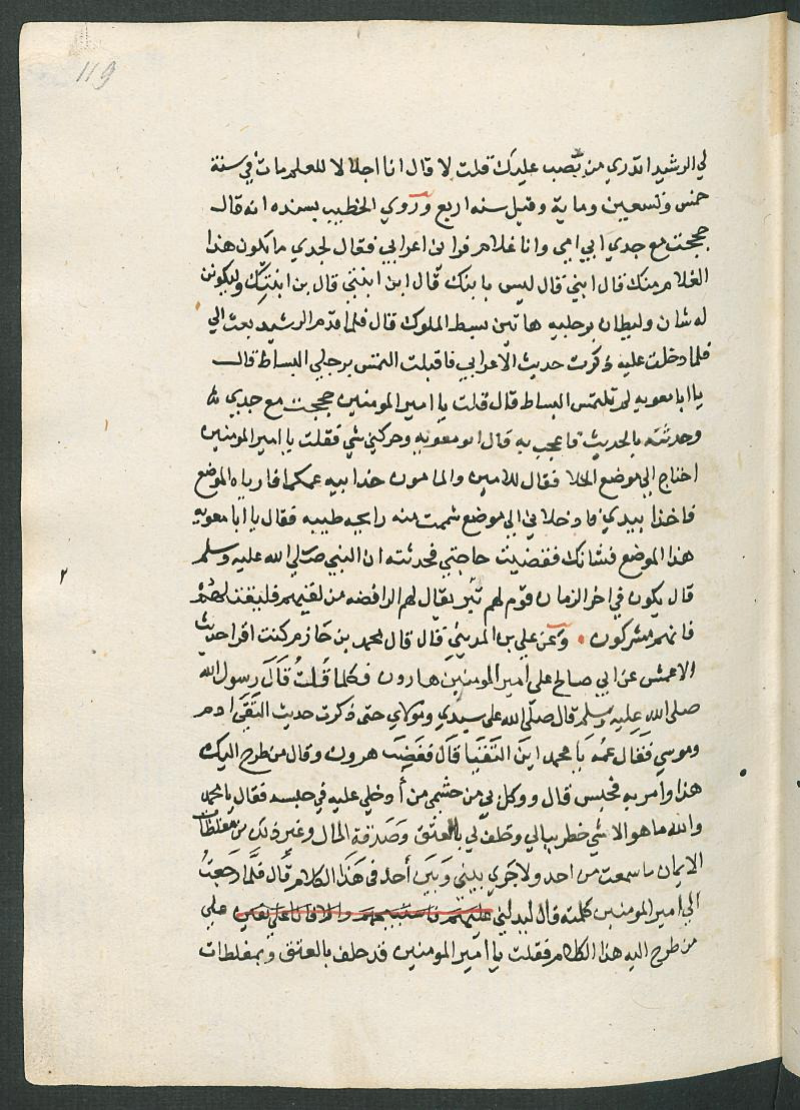 119
لي الرشيد اتدري من يصب عليك قلت لا قال انا اجلالا للعلم مات في سنة
خمس وتسعين وماية وقيل سنه اربع وروي الخطيب بسنده انه قال
حججت مع جدي ابي امي وانا غلام فراني اعرابي فقال لجدي ما يكون هذا
الغلام منك قال ابني قال ليس بابنك قال ابن ابنتي قال بن ابنتك وليكونن
له شان وليطان برجليه هاتين بسط الملوك قال فلما قدم الرشيد بعث الي
فلما دخلت عليه ذكرت حديث الاعرابي فاقبلت التمس برجلي البساط قال
يا ابا معويه لم تلتمس البساط قال قلت يا امير المومنين حججت مع جدي
وحدثته بالحديث فاعجب به قال ابو معويه وحركني شي فقلت يا امير المومنين
احتاج الي موضع الخلا فقال للامين والمامون خذا بيد عمكما فارياه الموضع
فاخذا بيدي فادخلاني الي موضع شممت منه رايحه طيبه فقال يا ابا معويه
هذا الموضع فشانك فقضيت حاجتي فحدثته ان النبي صلي الله عليه وسلم
قال يكون في اخر الزمان قوم لهم نبز يقال لهم الرافضه من لقيهم فليقتلهم
فانهم مشركون وعن علي بن المديني قال قال محمد بن خازم كنت اقرا حديث
الاعمش عن ابي صالح علي امير المومنين هارون فكلما قلت قال رسول الله
صلي الله عليه وسلم قال صلي الله علي سيدي ومولاي حتى ذكرت حديث التقي ادم
وموسي فقال عمه يا محمد اين التقيا قال فغضب هرون وقال من طرح اليك
هذا وامر به فحبس قال ووكل بي من حشمه من أدخلي عليه في حبسه فقال يا محمد
والله ما هو الا شي خطر ببالي وحلف لي بالعتق وصدقة المال وغير ذلك من مغلظات
الايمان ما سمعت من احد ولا جري بيني وبين أحد في هذا الكلام قال فلما رجعت
الي امير المومنين كلمته قال ليدلني علي
من طرح اليه هذا الكلام فقلت يا امير المومنين قد حلف بالعتق وبمغلظات